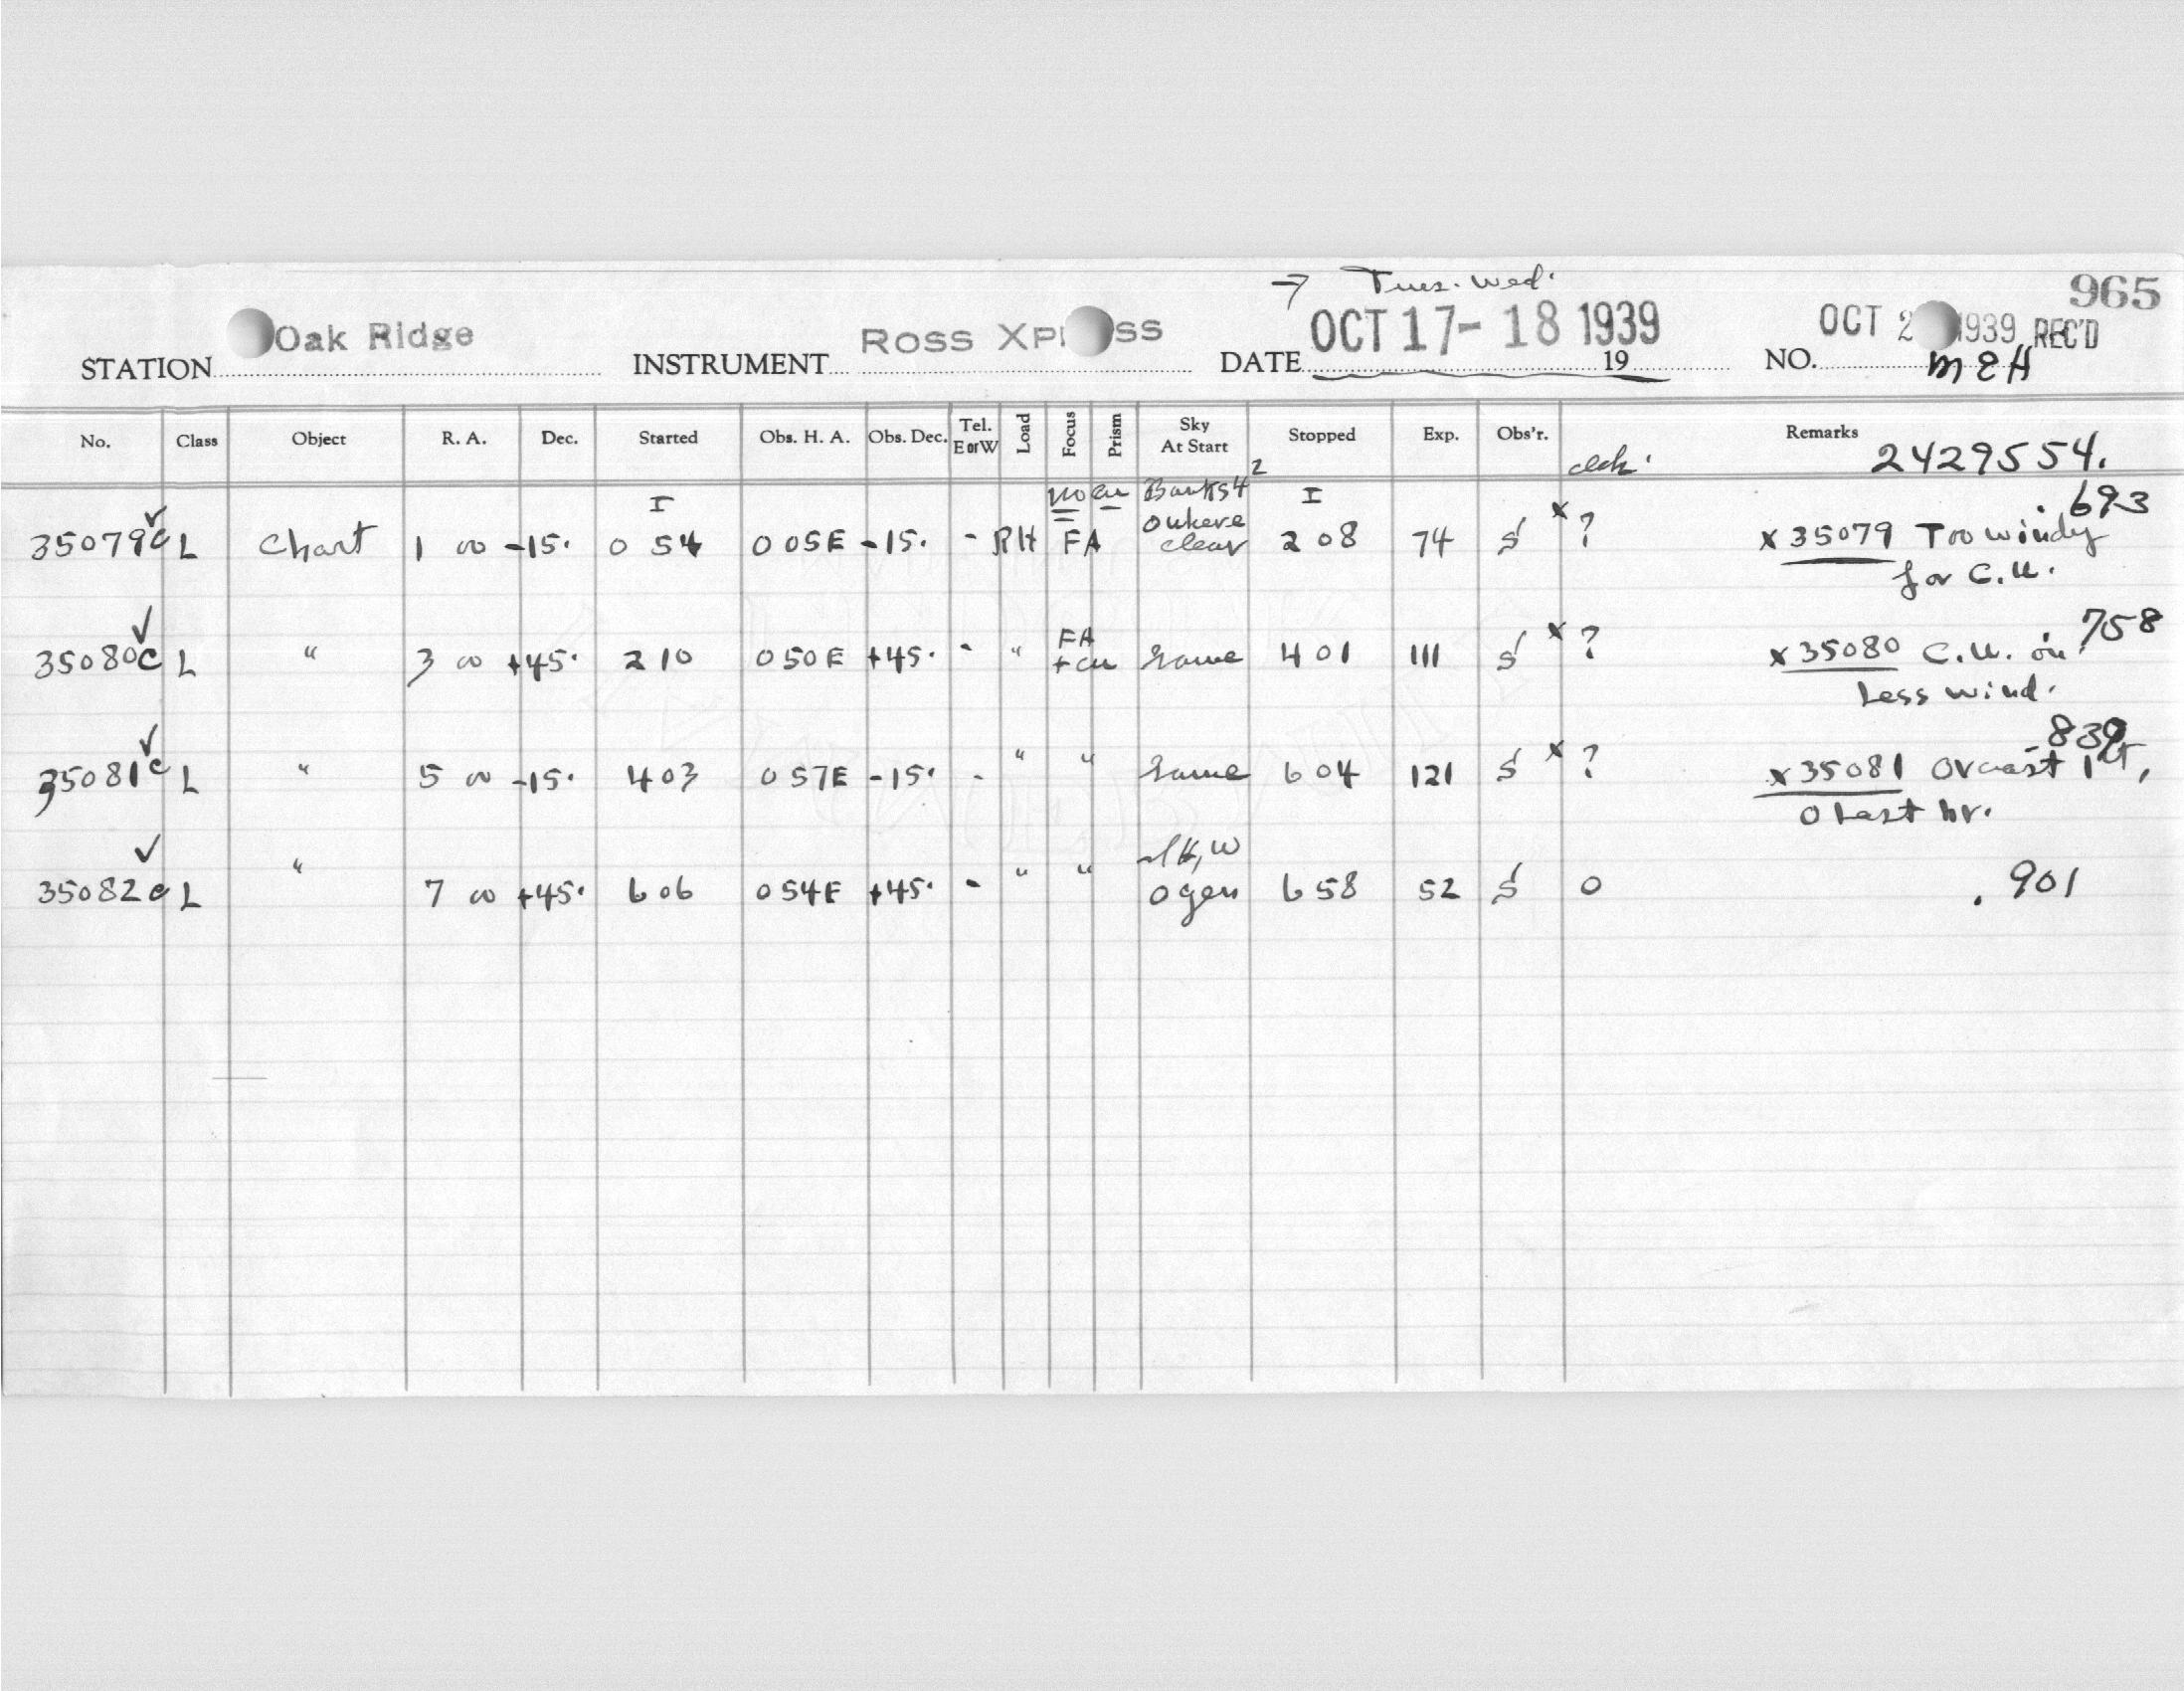 → Tues. Wed.
965
STATION Oak Ridge INSTRUMENT Ross Xpress DATE OCT 17-18 1939 19 NO. OCT 2 1939 REC'D
MEH
No. Class Object R. A. Dec. Started Obs. H. A. Obs. Dec. Tel. E or W Load Focus Prism Sky At Start Stopped Exp. Obs'r. Remarks
2429554.
I no cu Banks 4 I .693
35079c L Chart 1 00 -15. 0 54 0 05E -15. - RH FA clear 2 08 74 S x ? x 35079 Too windy
for C.U.
✓ FA .758
35080c L " 3 00 +45. 2 10 0 50E +45. - " + cu Same 4 01 111 S x ? x 35080 C.U. on
Less wind.
✓ .839
35081c L " 5 00 -15. 4 03 0 57E -15. - " " Same 6 04 121 S x ? x 35081 Ovcast 1st,
0 Last hr.
✓
35082c L " 7 00 +45. 6 06 0 54E +45. - " " 0 gen 6 58 52 S 0 .901